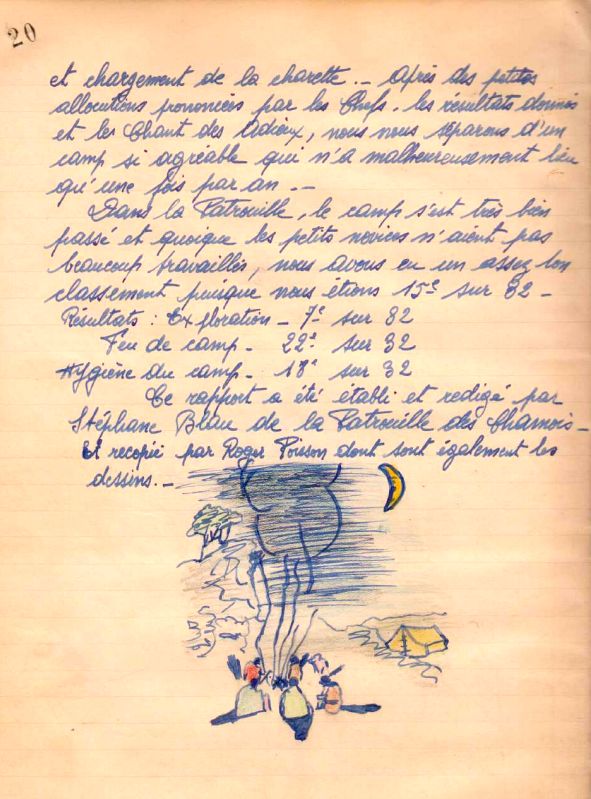 20
et chargement de la charette. _ Après des petites
allocutions prononcées par les Chefs. les résultats donnés
et le Chant des Adieux, nous nous séparons d'un
camp si agréable qui n'a malheureusement lieu
qu'une fois par an . _
Dans la Patrouille, le camp s'est très bien
passé et quoique les petits novices n'aient pas
beaucoup travaillés, nous avons eu un assez bon
classement puisque nous étions 15e sur 32 _
Résultats : Exploration _ 7e sur 32
Feu de camp _ 22e sur 32
Hygiène du camp _ 18e sur 32
Ce rapport a été établi et redigé par
Stéphane Blau de la Patrouille des Chamois _
Et recopié par Roger Poisson dont sont également les
dessins. _